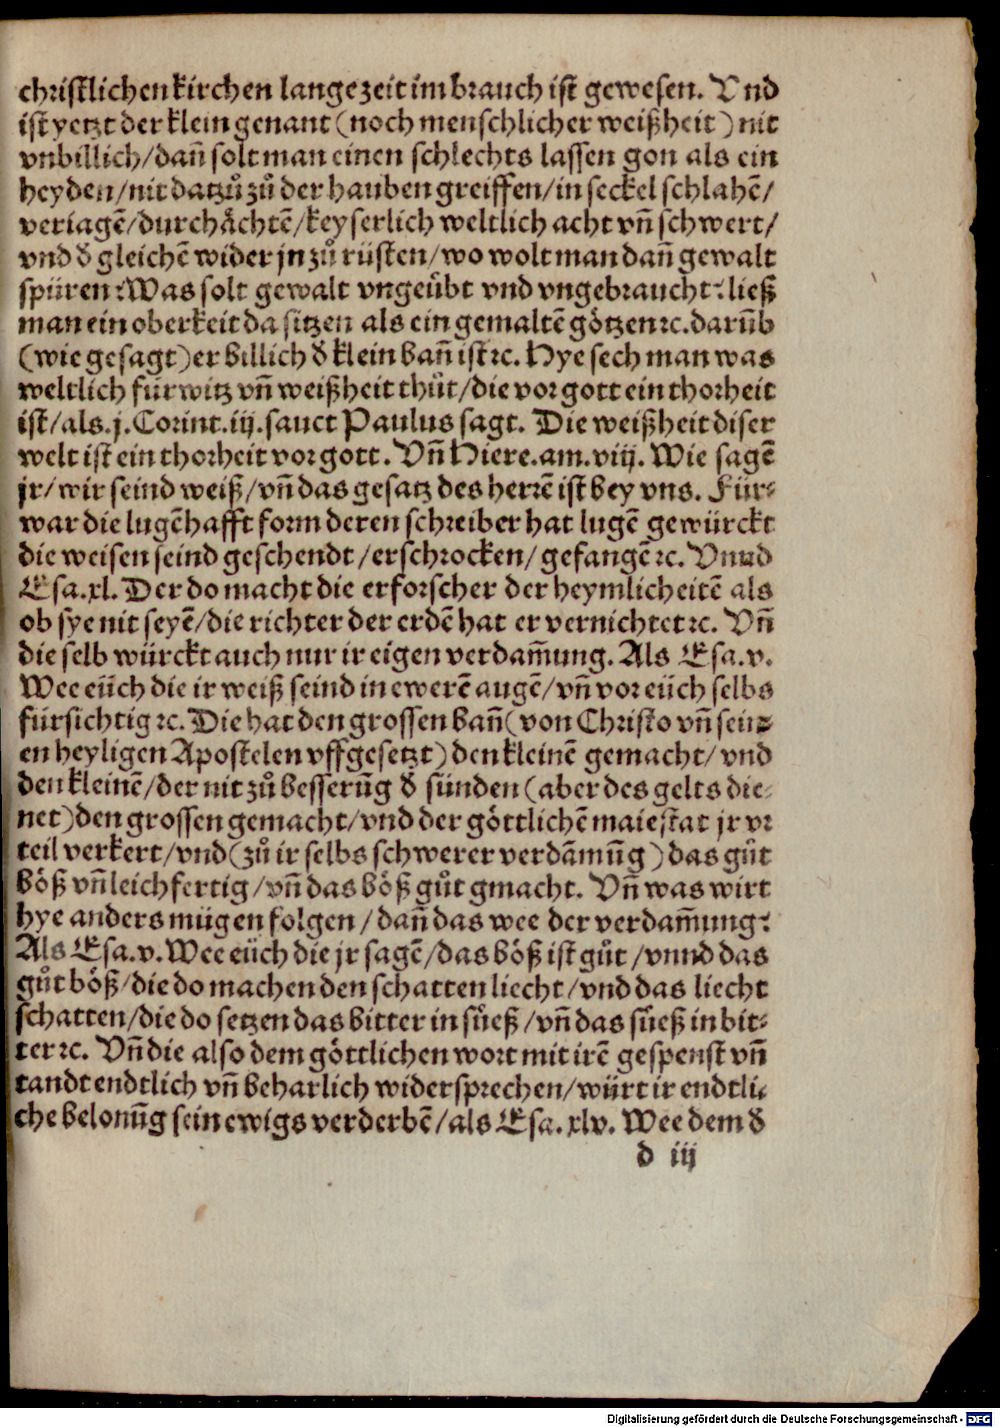 christlichen kirchen lange zeit im brauch ist gewesen. Vnd
ist yetzt der klein genant (noch menschlicher weißheit) nit
vnbillich/dañ solt man einen schlechts lassen gon als ein
heyden/nit datzů zů der hauben greiffen/in seckel schlahẽ/
veriagẽ/durchåchtẽ/keyserlich weltlich acht vñ schwert/
vnd d̕ gleichẽ wider jn zů rüsten/wo wolt man dañ gewalt
spüren? Was solt gewalt vngeübt vnd vngebraucht? ließ
man ein oberkeit da sitzen als ein gemaltẽ götzen ꝛc. darũb
(wie gesagt) er billich d̕ klein bañ ist ꝛc. Hye sech man was
weltlich fürwitz vñ weißheit thůt/die vor gott ein thorheit
ist/als .j. Corint. iij. sanct Paulus sagt. Die weißheit diser
welt ist ein thorheit vor gott. Vñ Hiere. am. viij. Wie sagẽ
jr/wir seind weiß/vñ das gesatz des herrẽ ist bey vns. Für⸗
war die lugẽhafft form deren schreiber hat lugẽ gewürckt
die weisen seind geschendt/erschrocken/gefangẽ ꝛc. Vnnd
Esa. xl. Der do macht die erforscher der heymlicheitẽ als
ob sye nit seyẽ/die richter der erdẽ hat er vernichtet ꝛc. Vñ
die selb würckt auch nur ir eigen verdam̃ung. Als Esa. v.
Wee eüch die ir weiß seind in ewerẽ augẽ/vñ vor eüch selbs
fürsichtig ꝛc. Die hat den grossen bañ (von Christo vñ sein⸗
en heyligen Apostelen vffgesetzt) den kleinẽ gemacht/vnd
den kleinẽ/der nit zů besserũg d̕ sünden (aber des gelts die⸗
net) den grossen gemacht/vnd der göttlichẽ maiestat jr vr
teil verkert/vnd (zů ir selbs schwerer verdãmũg) das gůt
böß vñ leichfertig/vñ das böß gůt gmacht. Vñ was wirt
hye anders mügen folgen/dañ das wee der verdam̃ung?
Als Esa. v. Wee eüch die jr sagẽ/das böß ist gůt/vnnd das
gůt böß/die do machen den schatten liecht/vnd das liecht
schatten/die do setzen das bitter in süeß/vñ das süeß in bit⸗
ter ꝛc. Vñ die also dem göttlichen wort mit irẽ gespenst vñ
tandt endtlich vñ beharlich widersprechen/würt ir endtli⸗
che belonũg sein ewigs verderbẽ/als Esa. xlv. Wee dem d̕
d iij
Digitalisierung gefördert durch die Deutsche Forschungsgemeinschaft - DFG